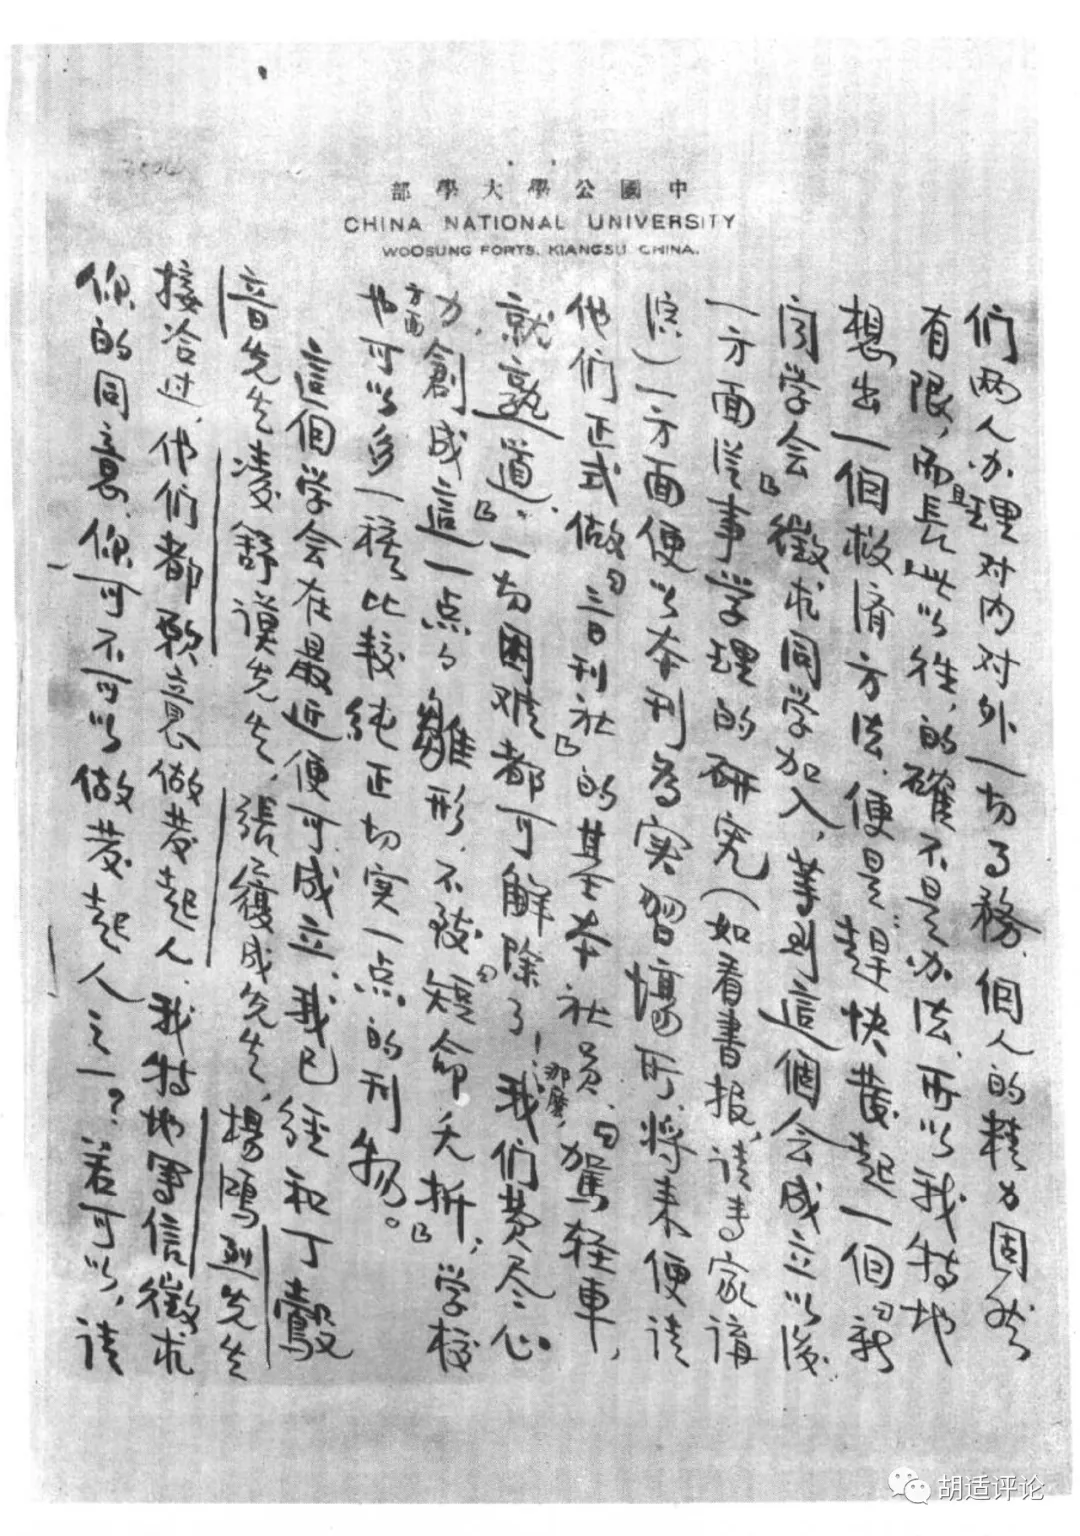 部學大學公國中
CHINA NATIONAL UNIVERSITY
WOOSUNG FORTS, KIANGSU CHINA.
们两人办理对内对外一切事務，個人的精力固然
有限，而且長此以往，的確不是办法，所以我特地
想出一個救濟方法，便是：趕快發起一個「新
闻学会」徵求同学加入，等到這個会成立以後
一方面從事学理的研究（如看書报，請专家講
演）一方面便以本刊為实習場所，将来便請
他们正式做「三日刊社」的基本社员，「駕轻車，
就熟道」，一切困难都可解除了！那麽，我们费尽心
力，創成這一点的雛形，不致「短命夭折」，学校
方面也可以多一種比較純正切实一点的刊物。
這個学会在最近便可成立，我已經和丁鷇
音先生凌舒谟先生，張履成先生，楊鴻烈先生
接洽过，他们都願意做發起人，我特地写信徵求
你的同意，你可不可以做發起人之一？若可以，請
胡适评论